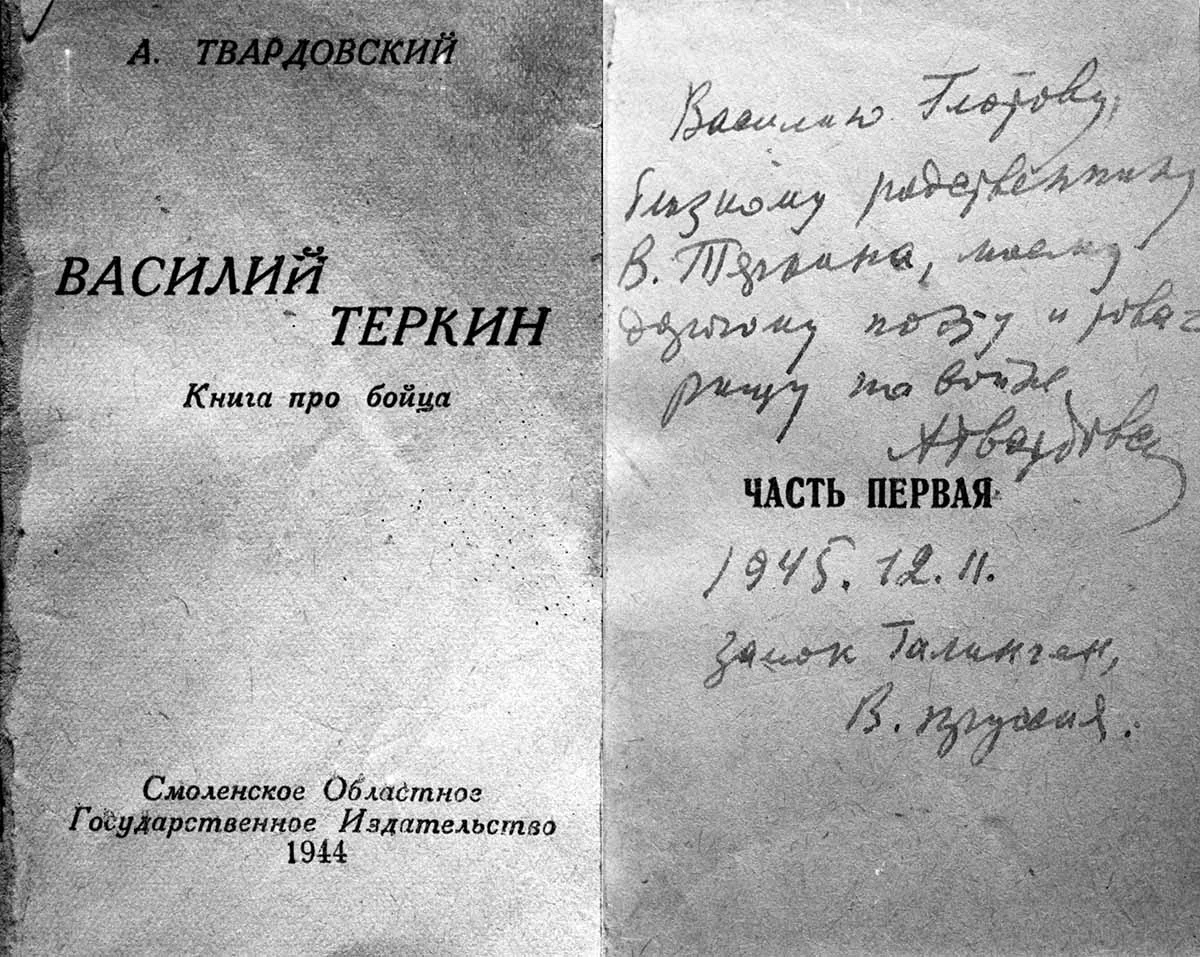 А. ТВАРДОВСКИЙ
ВАСИЛИЙ
ТЕРКИН
Книга про бойца
Смоленское Областное
Государственное Издательство
1944
Василию Глотову,
близкому родственнику
В. Тёркина, моему
дорогому поэту и това-
рищу по войне
АТвардовский
ЧАСТЬ ПЕРВАЯ
1945. 12. II.
замок Галинген,
В. Пруссия.